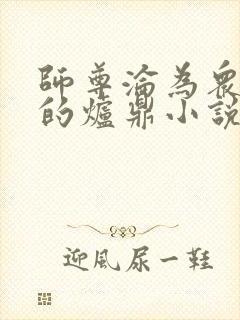 師尊淪為衆
的爐鼎小說
迎風尿一鞋